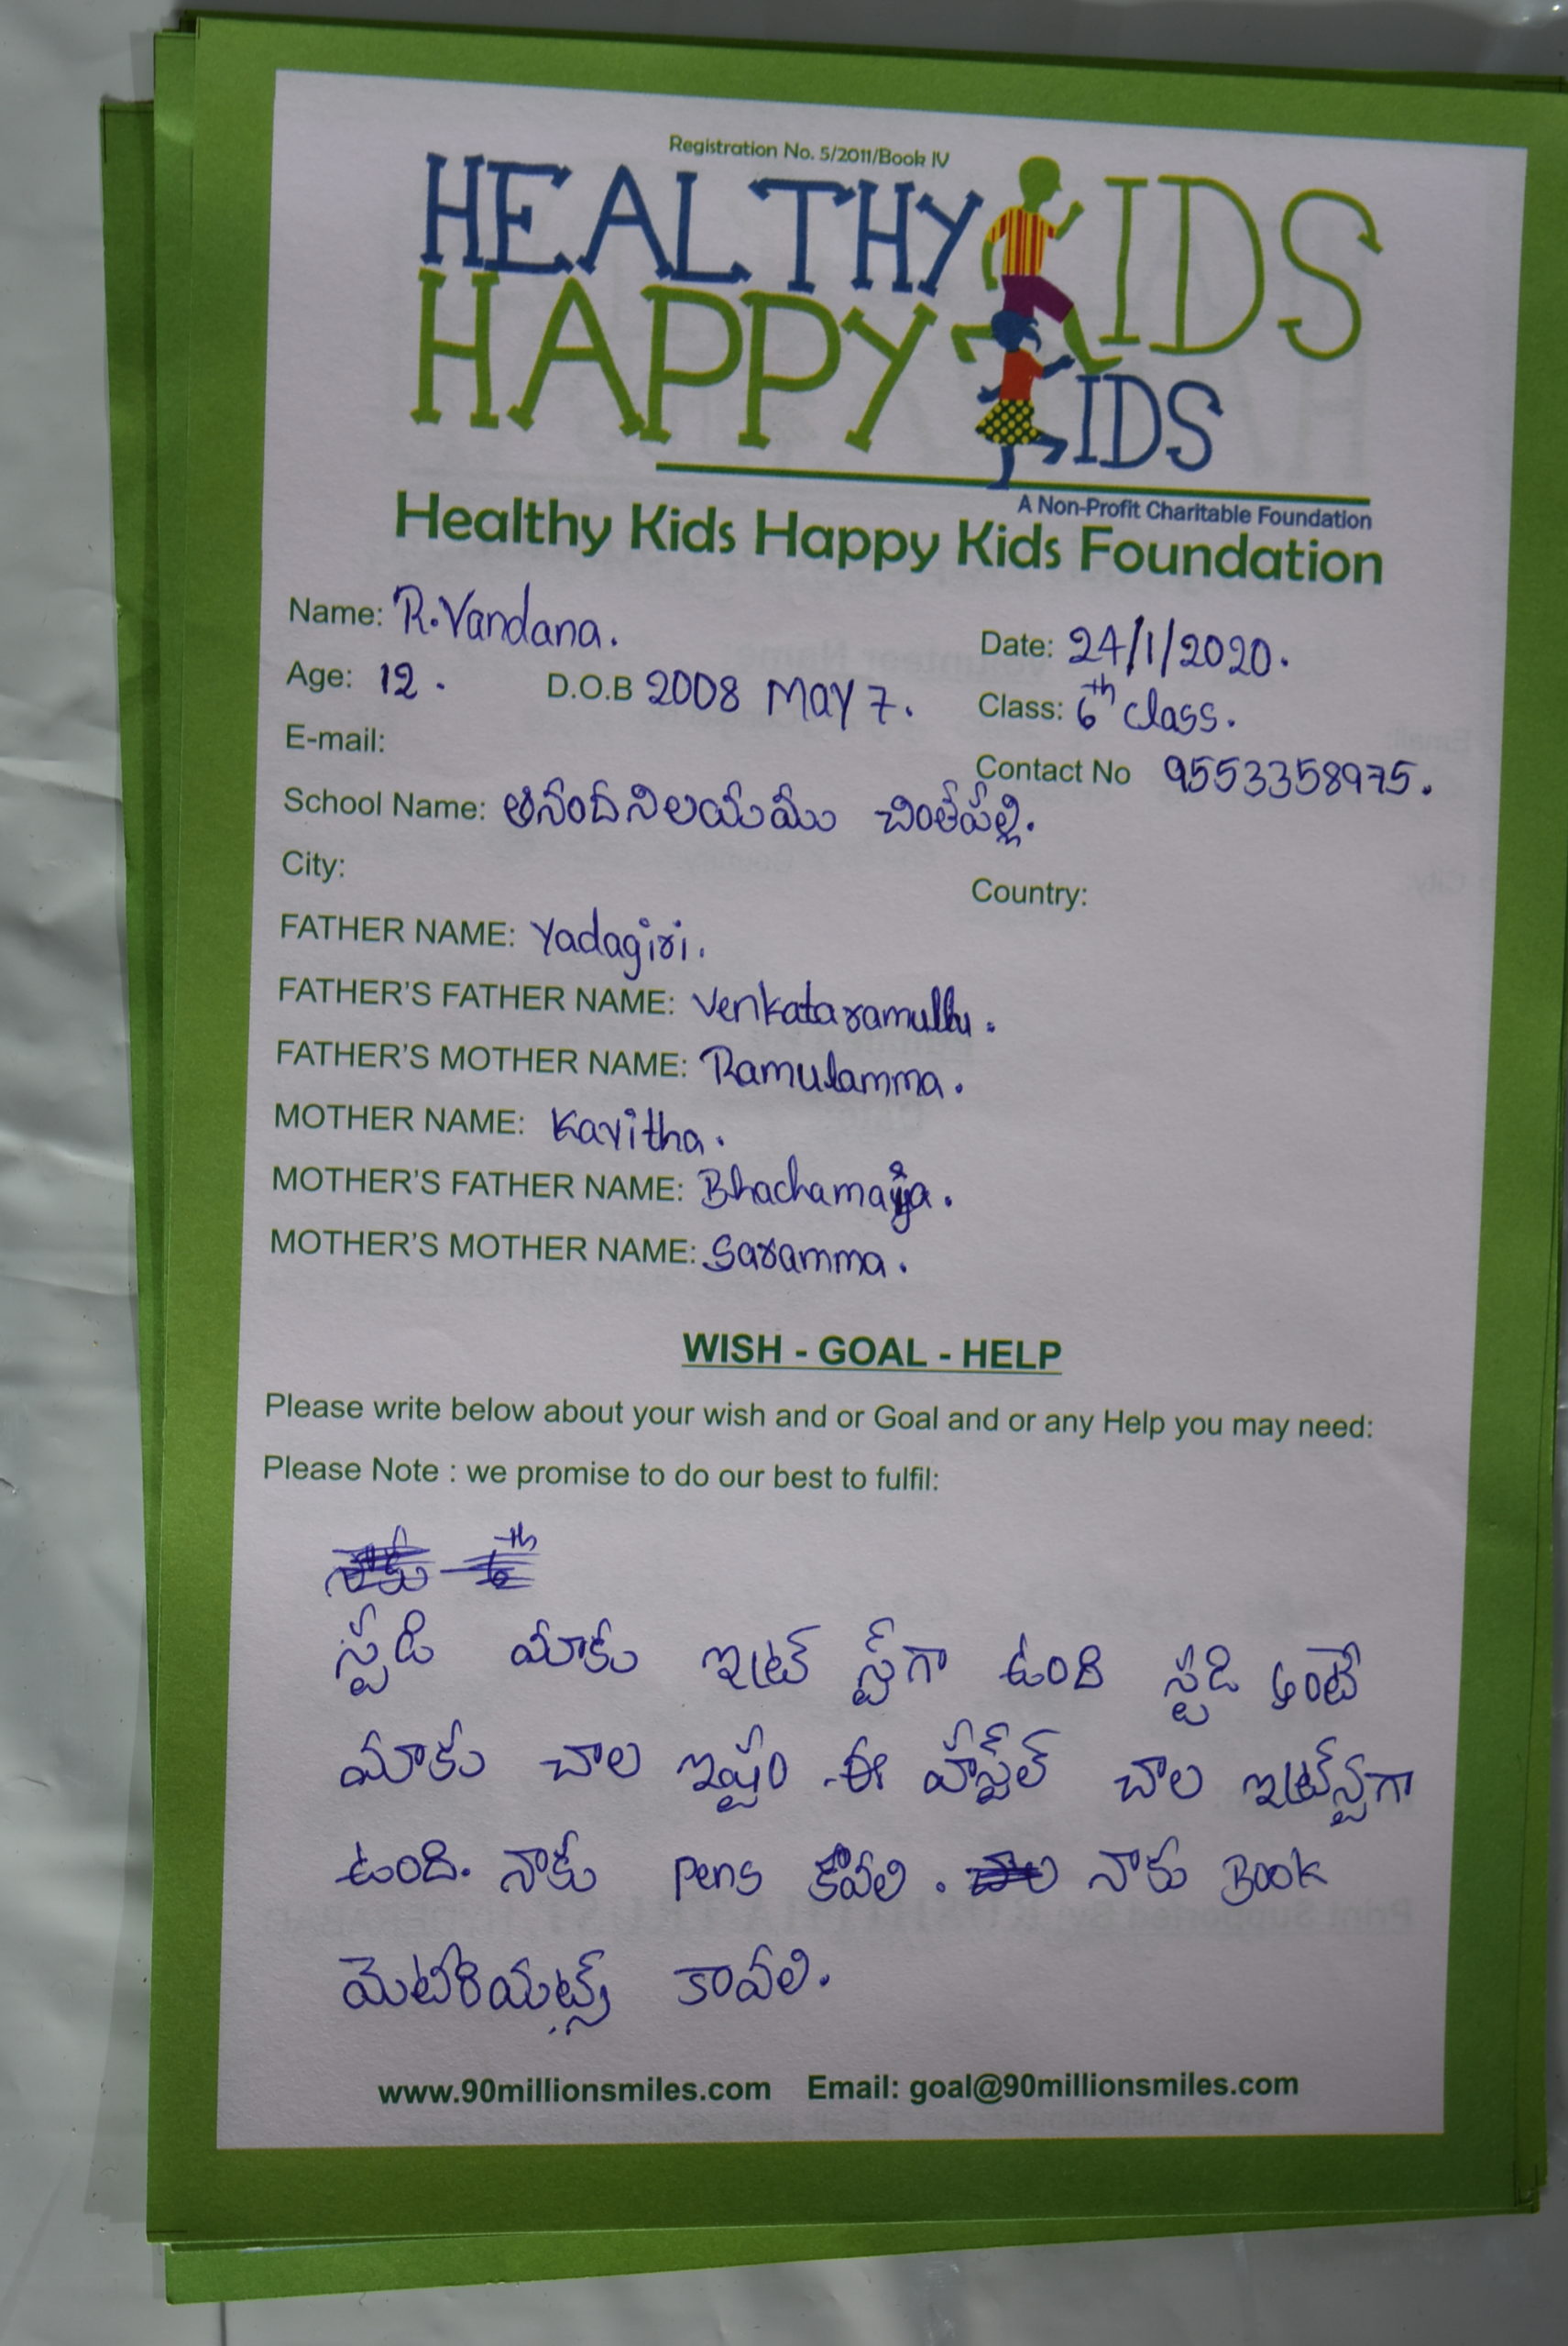 Registration No. 5/2011/Book IV
HEALTHY KIDS
HAPPY KIDS
A Non-Profit Charitable Foundation
Healthy Kids Happy Kids Foundation
Name: R.Vandana.
Date: 24/1/2020.
Age: 12. D.O.B 2008 MAY 7.
Class: 6th class.
E-mail:
Contact No 9553358975.
School Name: ఆనందనిలయము చింతపల్లి.
City:
Country:
FATHER NAME: Yadagiri.
FATHER'S FATHER NAME: Venkataramullu.
FATHER'S MOTHER NAME: Ramulamma.
MOTHER NAME: Kavitha.
MOTHER'S FATHER NAME:
MOTHER'S MOTHER NAME: Saramma.
WISH - GOAL - HELP
Please write below about your wish and or Goal and or any Help you may need:
Please Note : we promise to do our best to fulfil:
స్టడి మాకు ఉంది స్టడి అంటే
మాకు చాల ఇష్టం ఈ హాస్టల్ చాల
ఉంది. నాకు Pens కావలి. నాకు Book
మెటీరియట్స్ కావలి.
www.90millionsmiles.com Email: goal@90millionsmiles.com